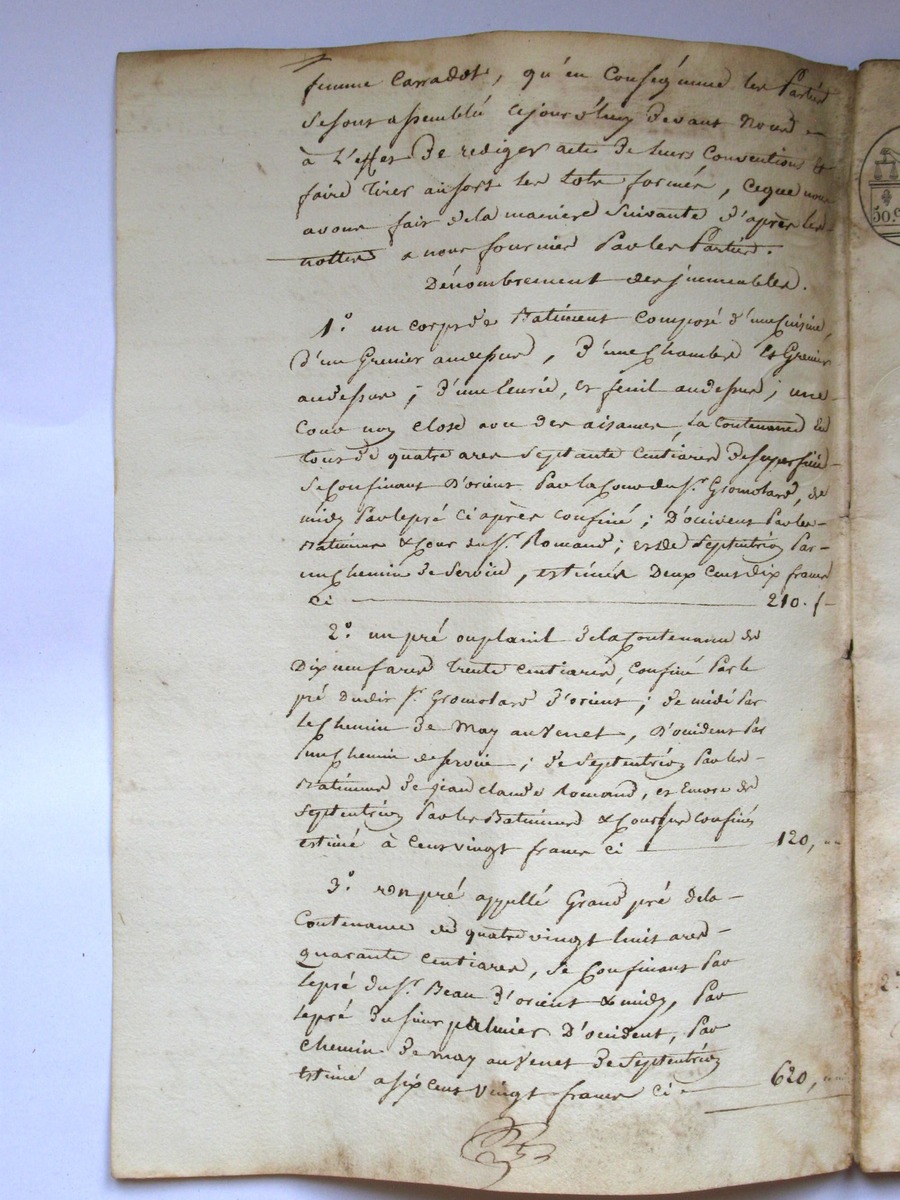 femme Carradot, qu'en conséquence les Parties
se sont assemblé cejourd'huy devant Nous
à L'effet de rediger acte de leurs Conventions &
faire tirer au sort les lots formés, ce que nous
avons fait de la maniere suivante d'après les
nottes a nous fournies Par les Parties.
Dénombrement des immeubles.
1.° un corps de Batiment composé d'une Cuisine,
d'un Grenier au dessus, d'une Chambre et Grenier
au dessus ; d'une Ecurie, et fenil au dessus ; une
Cour non close avec des aisances, la Contenance En
tout de quatre ares septante Centiares de superficie
se Confinant D'orient Par la Cour du S.r Gromolard, de
midy Par le pré ci après confiné ; D'occident Par les
Batimens & Cour du S.r Romand ; et de Septentrion Par
un Chemin de Service, estimés Deux Cent dix francs
Ci 210. f
2.° un pré ou de la Contenance de
Dix neuf ares trente Centiares, Confiné Par le
pré dudit S.r Gromolard d'orient ; de midi Par
le Chemin de May au Venet, D'occident Par
un Chemin de servie ; de Septentrion Par les
Batimens de jean claude Romand, et Encore de
Septentrion Par les Batimens & Cour sus confinés
estimé à Cent vingt francs Ci 120, "
3.° un pré appellé Grand pré de la
Contenance de quatre vingt huit ares
quarante Centiares, se Confinant Par
le pré du S.r Beau d'orient & midy, Par
le pré du sieur palmier D'occident, Par
Chemin de May au Venet de Septentrion
Estimé a six cent vingt francs Ci 620, "
50.c